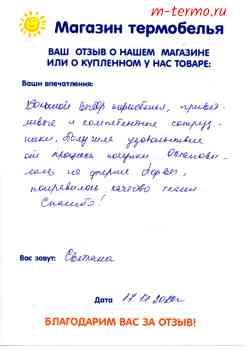 m-termo.ru
Магазин термобелья
ВАШ ОТЗЫВ О НАШЕМ МАГАЗИНЕ
ИЛИ О КУПЛЕННОМ У НАС ТОВАРЕ:
Ваши впечатления:
Большой выбор термобелья, привет-
ливые и компетентные сотруд-
ники. Получила удовольствие
от процесса покупки. Останови-
лась на фирме
понравилось качество ткани.
Спасибо!
Вас зовут: Светлана
Дата
БЛАГОДАРИМ ВАС ЗА ОТЗЫВ!